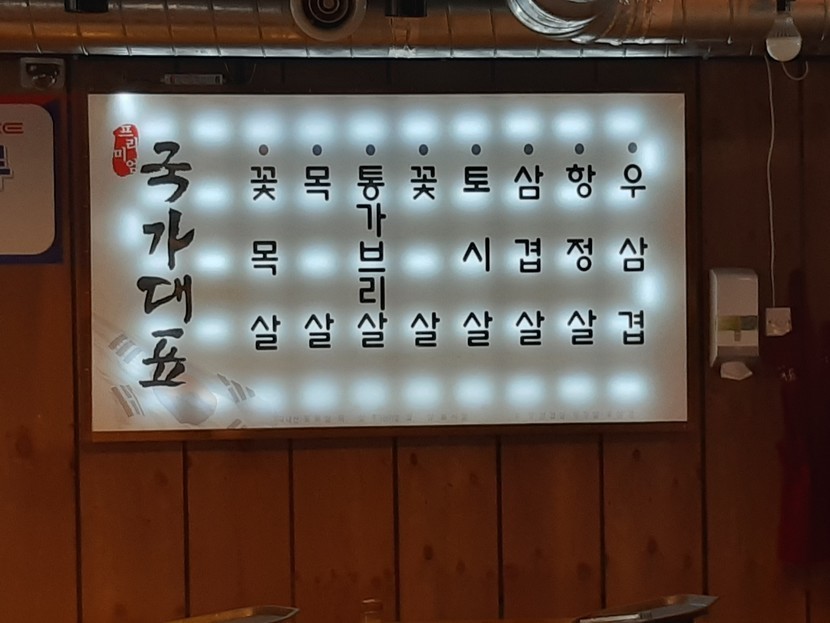 프리미엄
국가대표
꽃목살
목살
통가브리살
꽃살
토시살
삼겹살
항정살
우삼겹